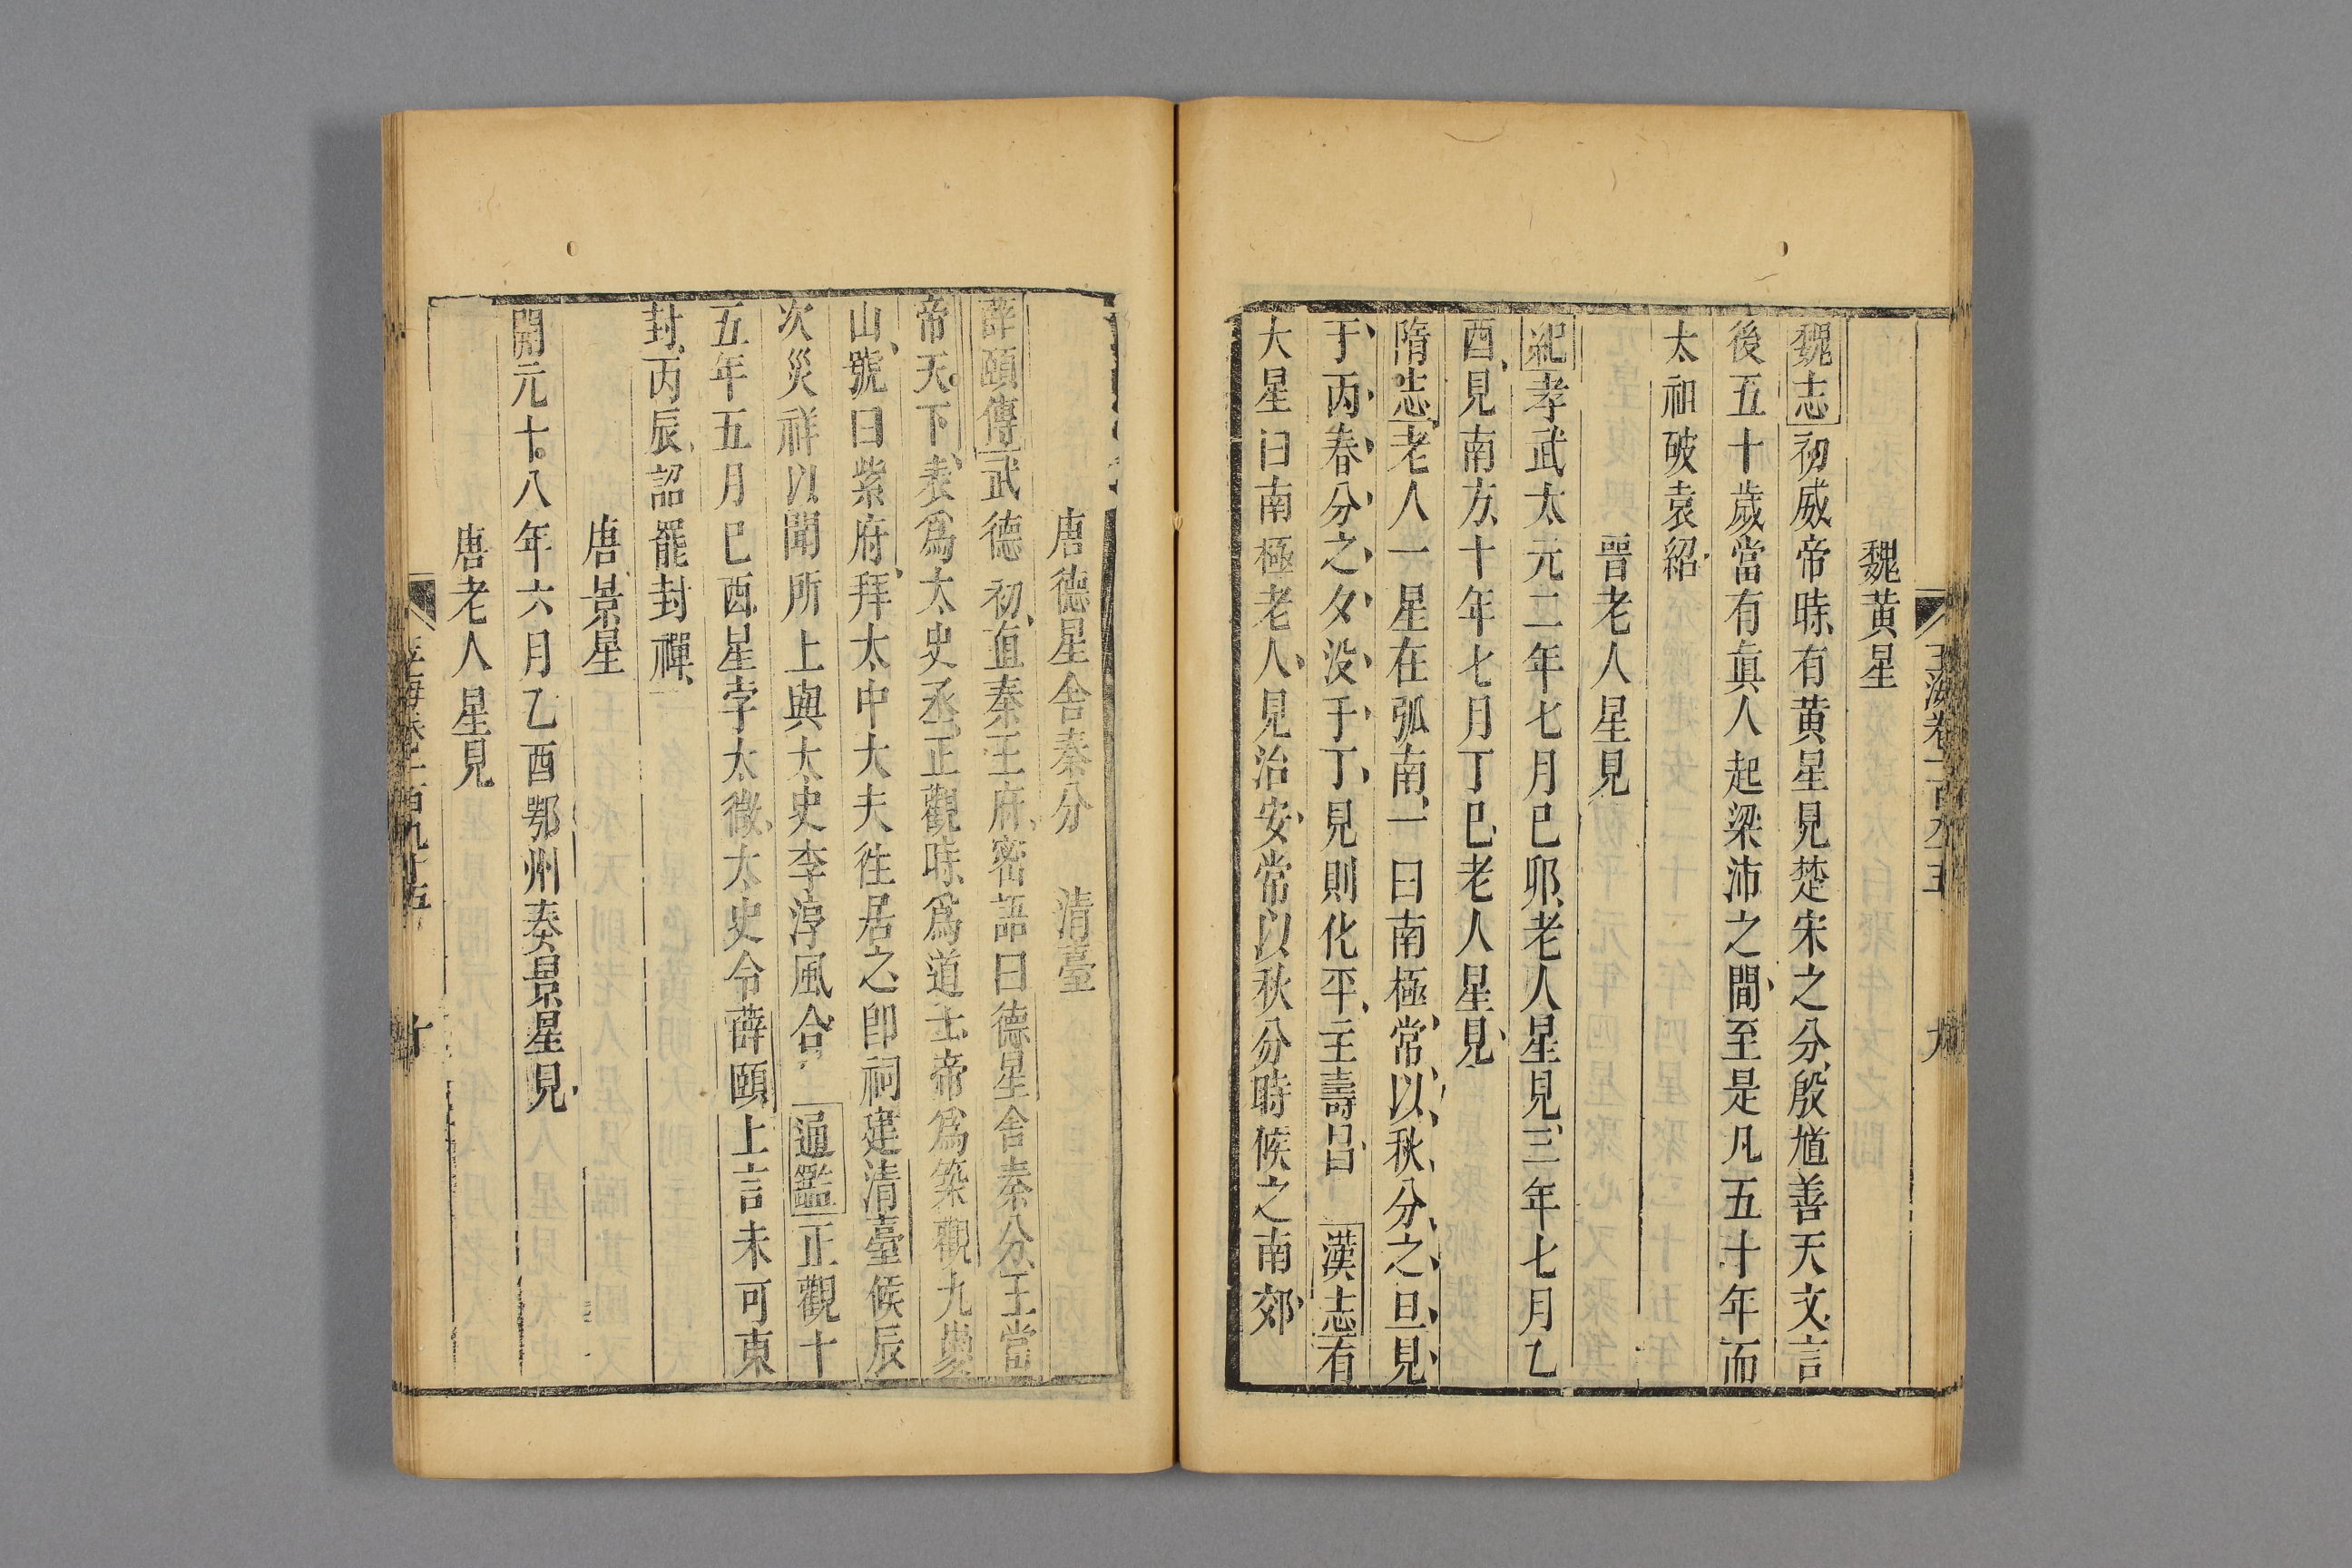 玉海卷一百九十五　九
魏黄星
魏志初威帝時有黄星見楚宋之分殷馗善天文言
後五十歲當有真人起梁沛之間至是凡五十年而
太祖破袁紹
晉老人星見
紀孝武太元二年七月巳卯老人星見三年七月乙
酉見南方十年七月丁巳老人星見
隋志老人一星在弧南一曰南極常以秋分之旦見
于丙春分之夕没于丁見則化平主壽昌　漢志有
大星曰南極老人見治安常以秋分時候之南郊
唐德星舍秦分　清臺
薛頤傳武德初直秦王府密語曰德星舍秦分王當
帝天下表爲太史丞正觀時爲道士帝爲築觀九嵏
山號曰紫府拜太中大夫徃居之卽祠建清臺候辰
次災祥以聞所上與太史李淳風合　通鑑正觀十
五年五月巳酉星孛太微太史令薛頤上言未可東
封丙辰詔罷封禪
唐景星
開元十八年六月乙酉鄂州奏景星見
唐老人星見
玉海卷一百九十五　十